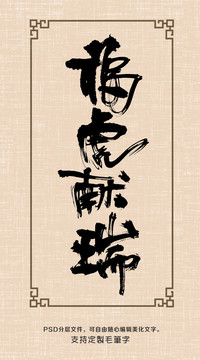 福虎献瑞
PSD分层文件，可自由随心编辑美化文字。
支持定製毛筆字